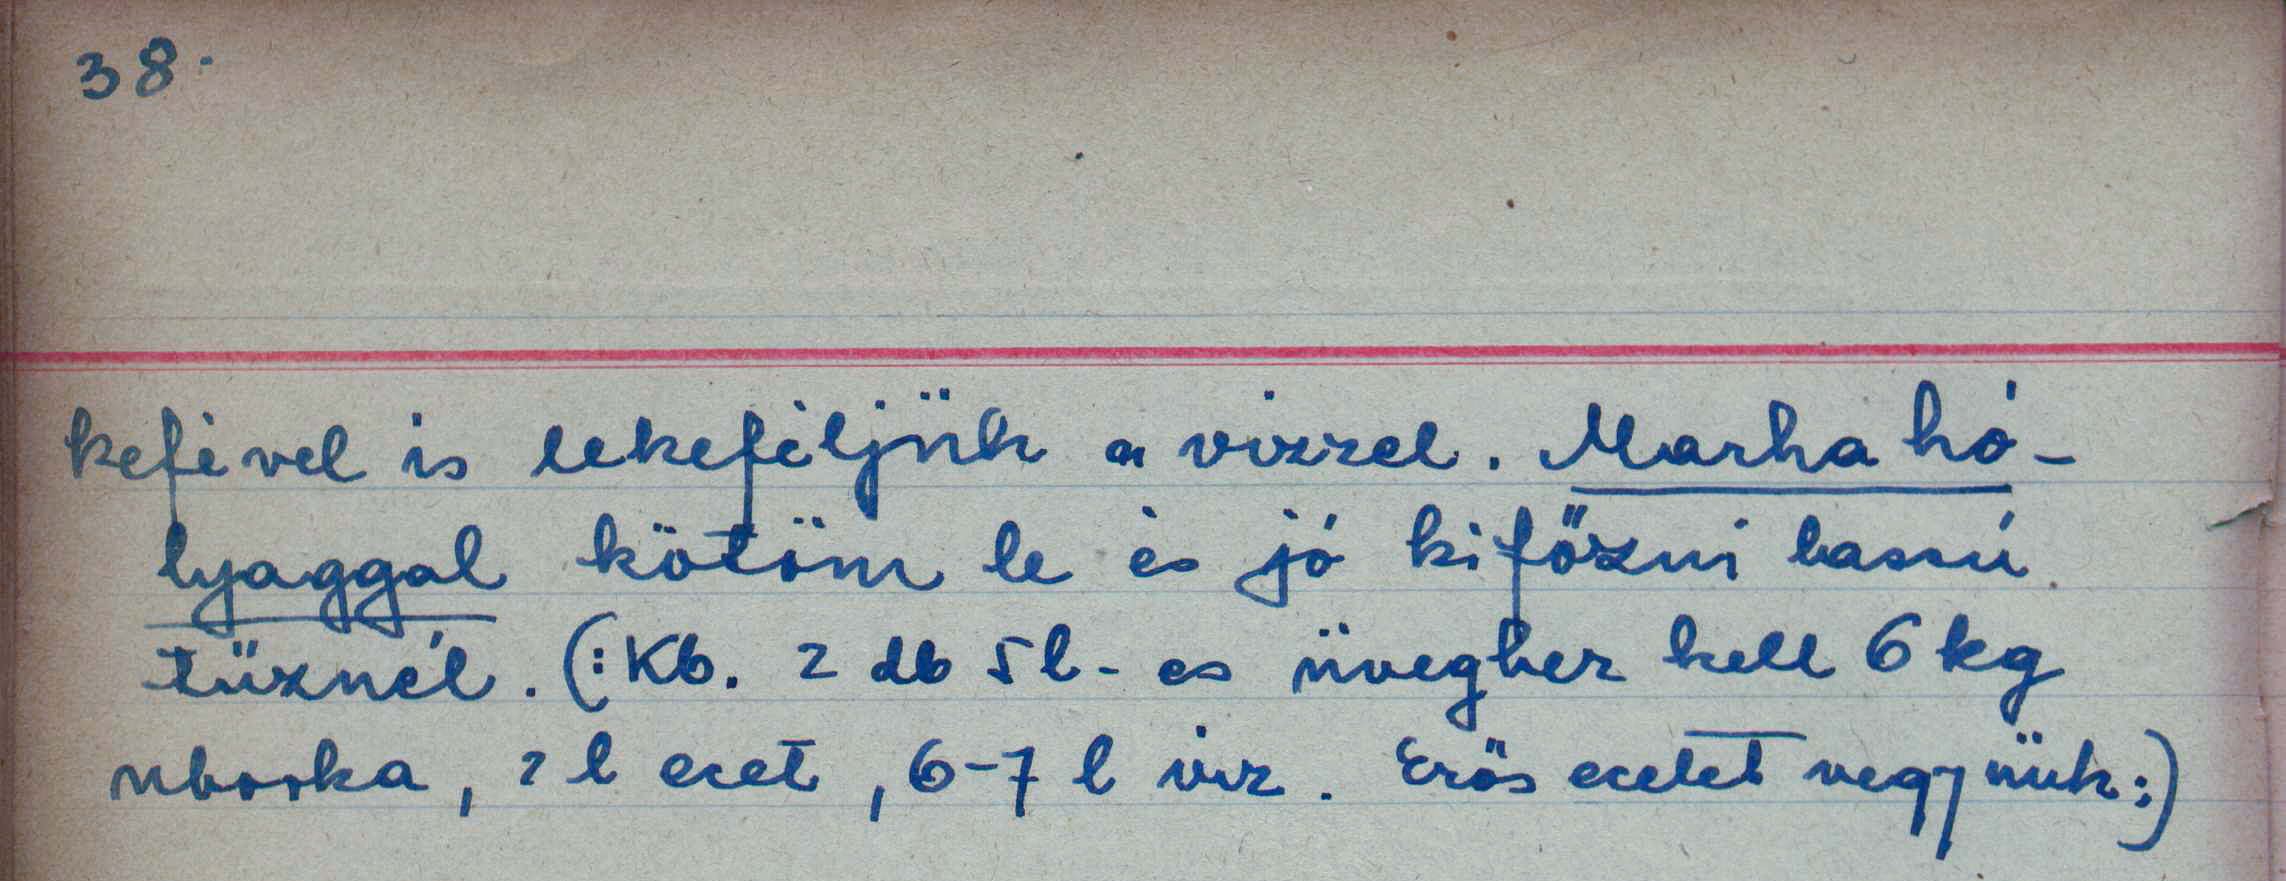 38.
kefével is lekeféljük a vizzel. Marha hó-
lyaggal kötöm le és jó kifőzni lassú
tüznél. (: Kb. 2 db 5 l-es üveghez kell 6 kg
uborka, 2 l ecet, 6-7 l viz. Erős ecetet vegyünk :)